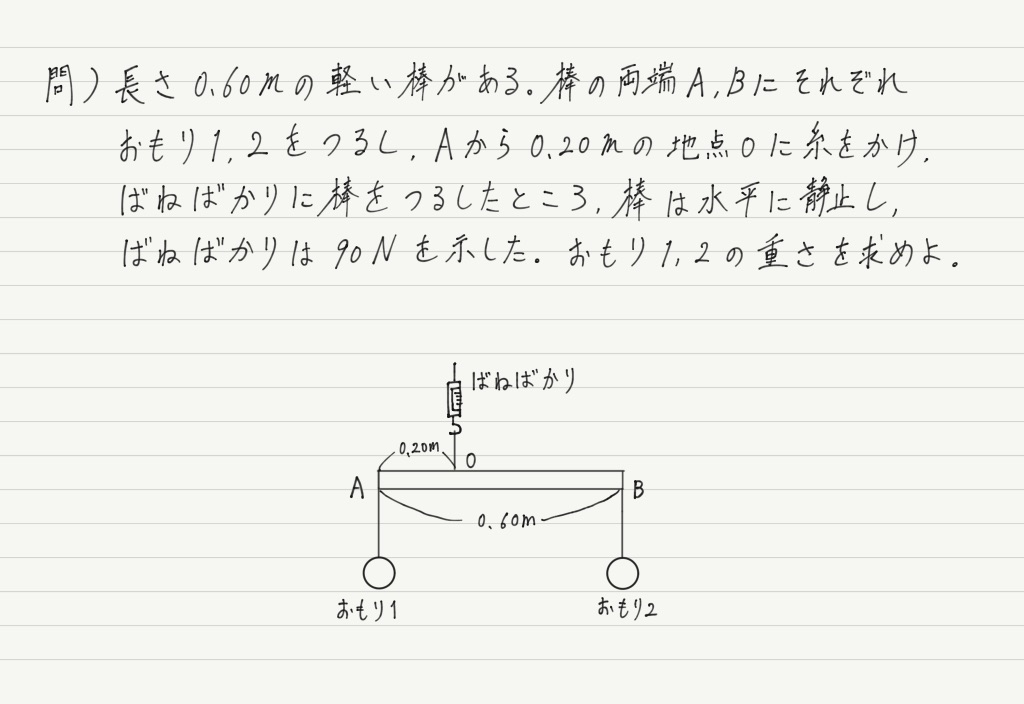 問) 長さ 0.60mの軽い棒がある。棒の両端A,Bにそれぞれ
おもり1, 2をつるし, Aから0.20mの地点Oに糸をかけ,
ばねばかりに棒をつるしたところ, 棒は水平に静止し,
ばねばかりは90Nを示した. おもり1, 2の重さを求めよ.
ばねばかり
0.20m
O
A
B
0.60m
おもり1
おもり2